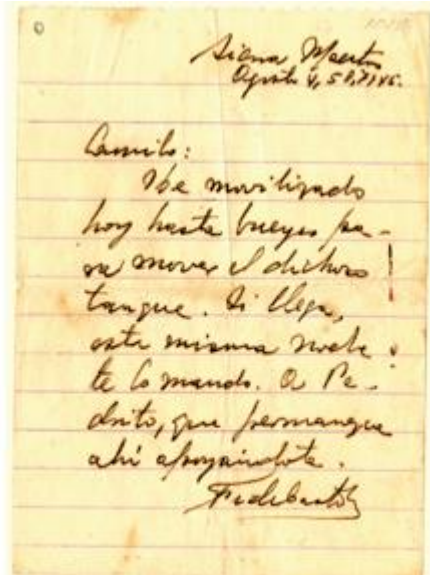 Sierra Maestra
Agosto 4, 58, 7 y 45.
Camilo:
He movilizado
hoy hasta bueyes pa-
ra mover el dichoso
tanque. Si llega,
esta misma noche
te lo mando. A Pe-
drito, que permanezca
ahí apoyándote.
Fidel Castro